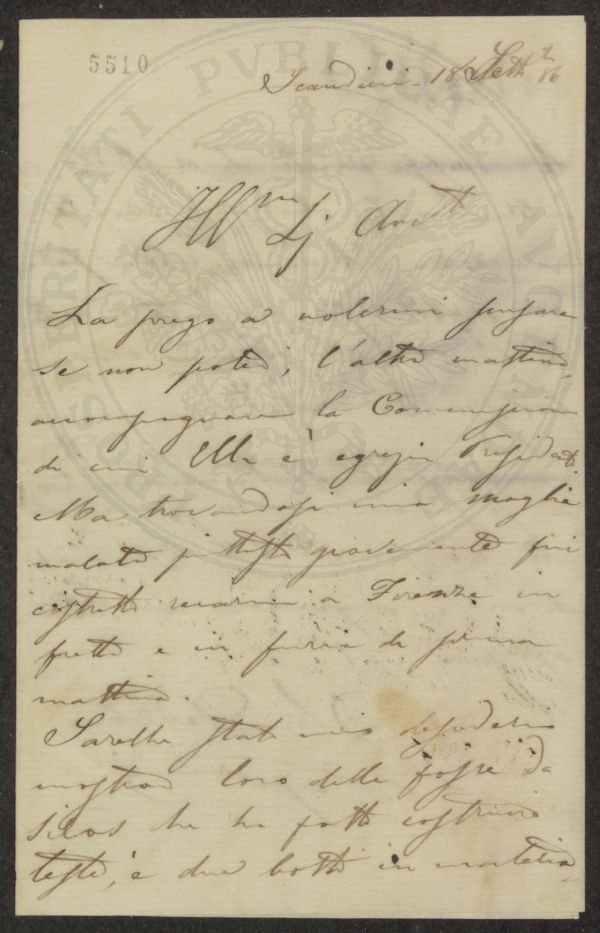 5510
Scandicci - 18 Sett 86
Ill.mo Sig Avv
La prego a volermi scusare
se non potei, l'altra mattina,
accompagnare la Commissione
di cui Ella è egregio Presidente.
Ma trovandosi mia moglie
malata piuttosto gravemente fui
costretto recarmi a Firenze in
fretta e in furia di prima
mattina.
Sarebbe stato mio desiderio
mostrar loro delle fosse da
silos che ho fatto costruire
testè, e due botti in
PROSPERITATI PVBLICAE AVGENDAE